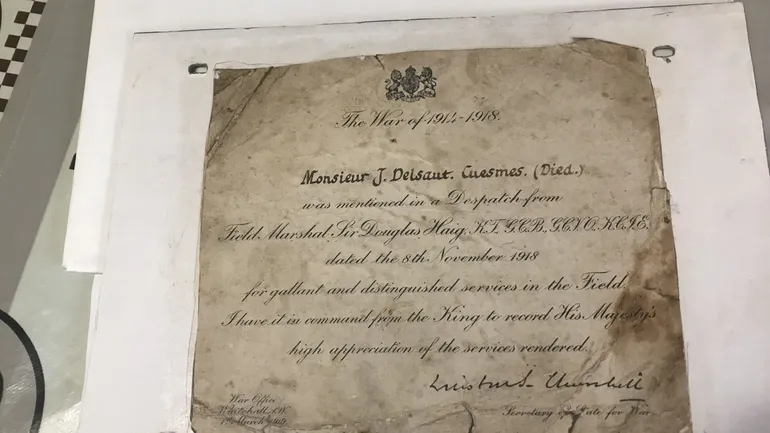 The War of 1914-1918.
Monsieur J. Delsaut. Cuesmes. (Died.)
was mentioned in a Despatch from
Field Marshal Sir Douglas Haig, K.T. G.C.B. G.C.V.O. K.C.I.E.
dated the 8th November 1918
for gallant and distinguished services in the Field.
I have it in command from the King to record His Majesty's
high appreciation of the services rendered.
Winston S. Churchill
War Office
Whitehall, S.W.
1st March 1919
Secretary of State for War